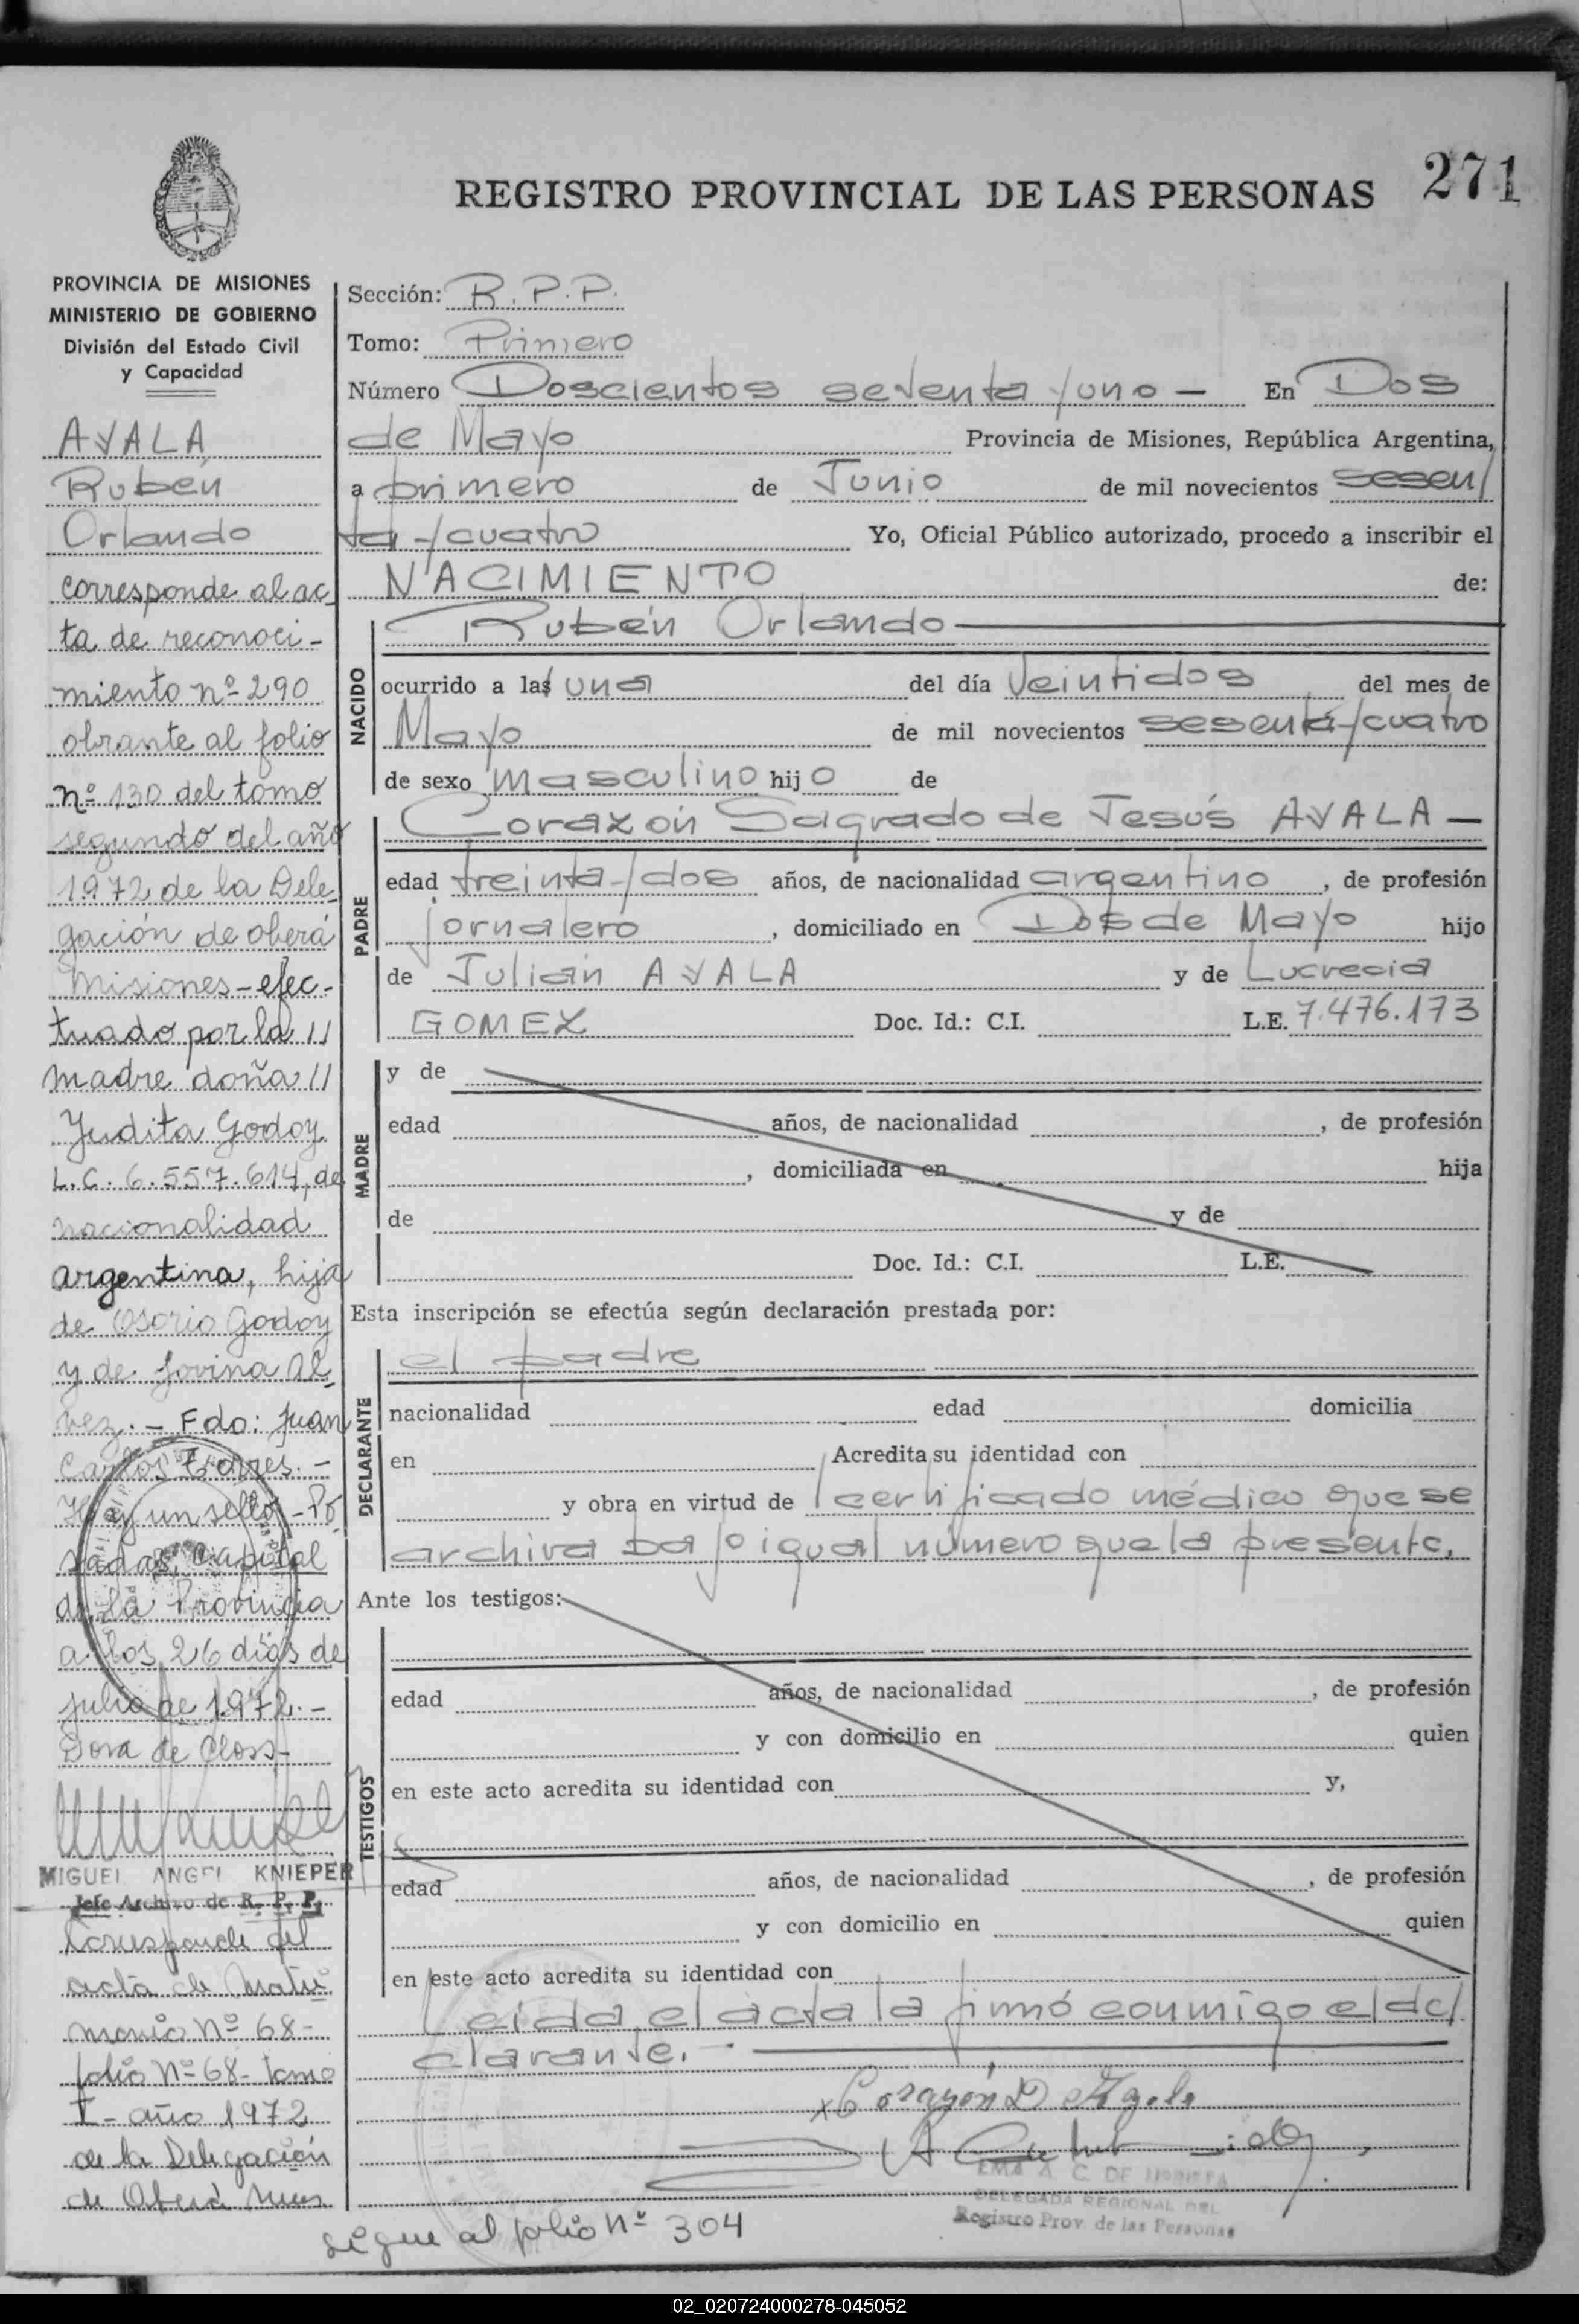 REGISTRO PROVINCIAL DE LAS PERSONAS 271
PROVINCIA DE MISIONES
MINISTERIO DE GOBIERNO
División del Estado Civil
y Capacidad
AYALA
Rubén
Orlando
corresponde al ac
ta de reconoci-
miento nº 290
obrante al folio
nº 130 del tomo
segundo del año
1972 de la Dele
gación de oberá
Misiones-efec-
tuado por la //
madre doña //
Judita Godoy
L.C. 6.557.614, de
nacionalidad
argentina, hija
de Osorio Godoy
y de Jovina Al
vez.- Fdo: Juan
Carlos Torres.-
Hay un sello-Po
sadas, Capital
de la Provincia
a los 26 días de
julio de 1972.-
Dora de Closs-
MIGUEL ANGEL KNIEPER
Jefe Archivo de R. P. P.
Corresponde del
acta de Matri
monio Nº 68-
folio Nº 68- tomo
I- año 1972
de la Delegación
de Oberá Mnes
Sección: R.P.P.
Tomo: Primero
Número Doscientos setenta y uno - En Dos
de Mayo Provincia de Misiones, República Argentina,
a primero de Junio de mil novecientos sesen/
ta y cuatro Yo, Oficial Público autorizado, procedo a inscribir el
NACIMIENTO de:
Rubén Orlando
NACIDO
ocurrido a las una del día Veintidos del mes de
Mayo de mil novecientos sesenta y cuatro
de sexo masculino hijo de
Corazón Sagrado de Jesús AYALA -
PADRE
edad treinta y dos años, de nacionalidad argentino, de profesión
jornalero, domiciliado en Dos de Mayo hijo
de Julián AYALA y de Lucrecia
GOMEZ Doc. Id.: C.I. L.E. 7.476.173
MADRE
y de
edad años, de nacionalidad , de profesión
, domiciliada en hija
de y de
Doc. Id.: C.I. L.E.
Esta inscripción se efectúa según declaración prestada por:
el padre
DECLARANTE
nacionalidad edad domicilia
en Acredita su identidad con
y obra en virtud de certificado médico que se
archiva bajo igual número que la presente.
Ante los testigos:
TESTIGOS
edad años, de nacionalidad , de profesión
y con domicilio en quien
en este acto acredita su identidad con y,
edad años, de nacionalidad , de profesión
y con domicilio en quien
en este acto acredita su identidad con
Leida el acta la firmó conmigo el de/
clarante.
DELEGADA REGIONAL DEL
Registro Prov. de las Personas
sigue al folio Nº 304
02_020724000278-045052